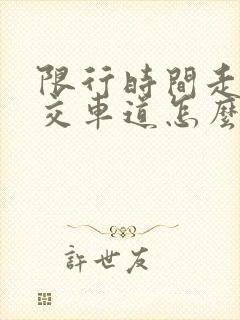 限行時間走
交車道怎麼
許世友